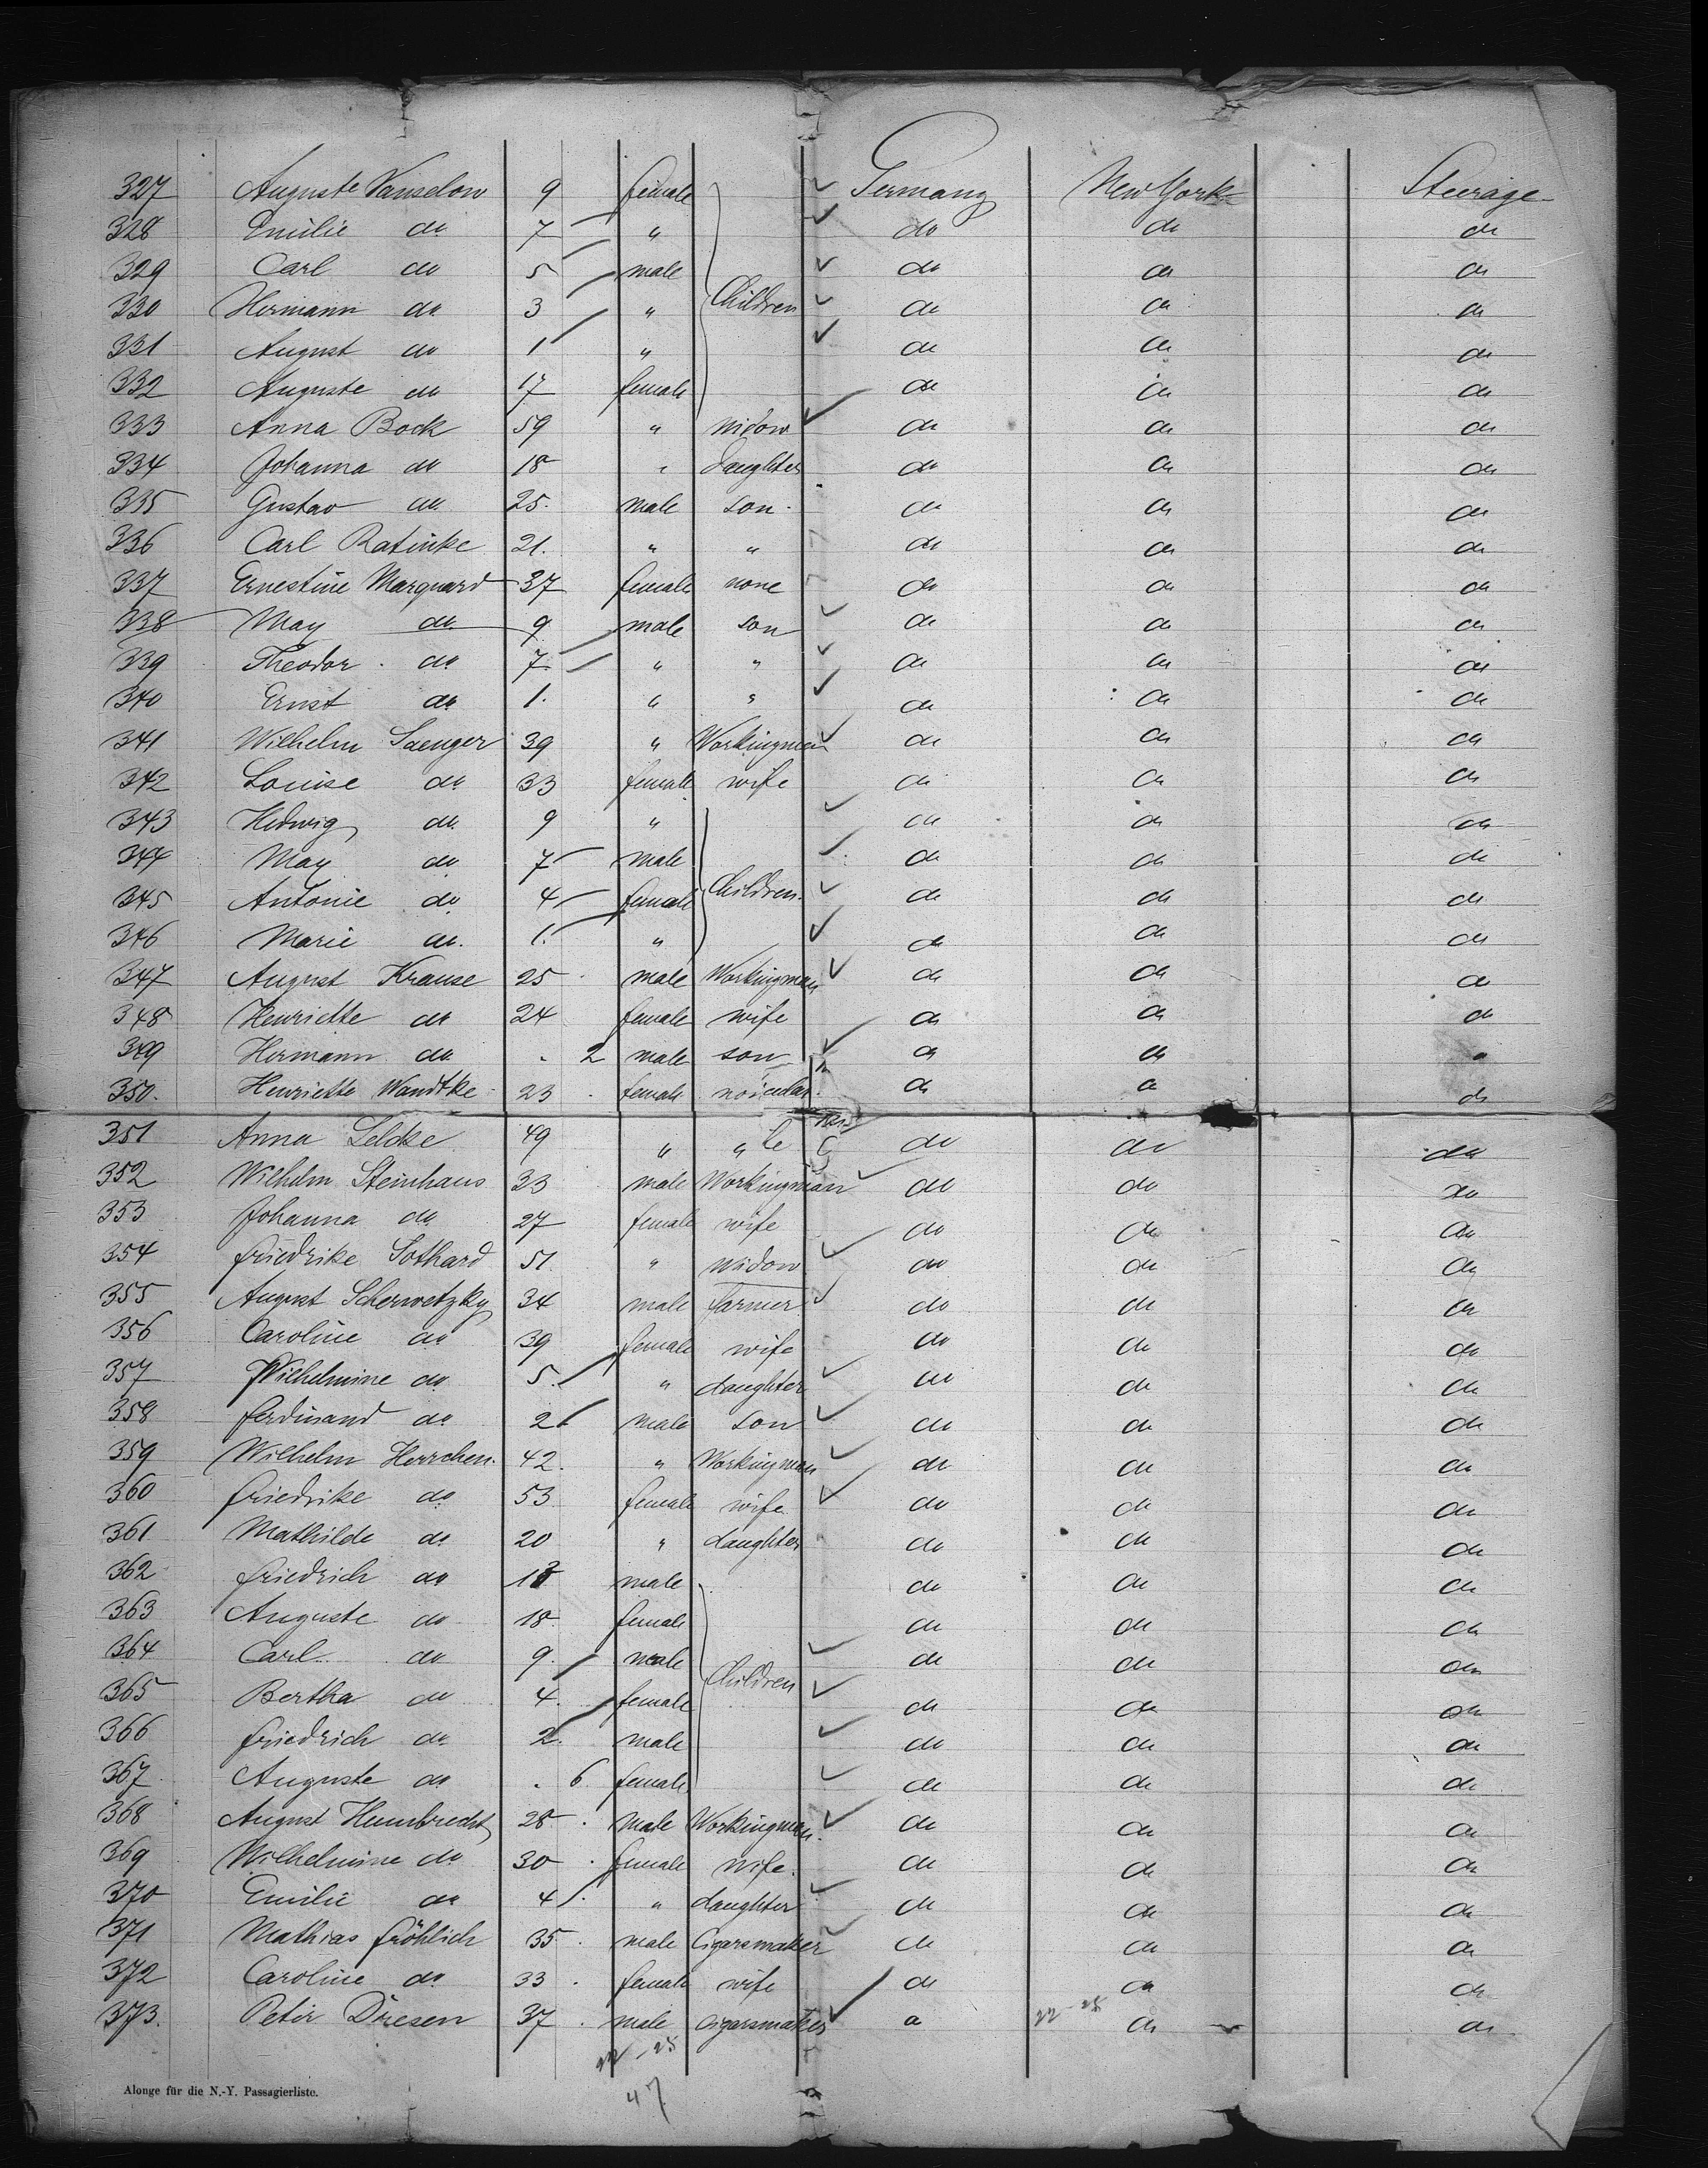 327 Auguste Vanselow 9 female Germany New York Steerage
328 Emilie do 7 " do do do
329 Carl do 5 male do do do
330 Hermann do 3 " Children do do do
331 August do 1 " do do do
332 Auguste do 17 female do do do
333 Anna Bock 59 " widow do do do
334 Johanna do 18 " Daughter do do do
335 Gustav do 25. male son. do do do
336 Carl Ratinke 21. " " do do do
337 Ernestine Marquard 37 female none do do do
338 Max do 9 male son do do do
339 Theodor do 7 " " do do do
340 Ernst do 1. " " do do do
341 Wilhelm Saenger 39 " Workingman do do do
342 Louise do 33 female wife do do do
343 Hedwig do 9 " do do do
344 Max do 7 male do do do
345 Antonie do 4 female Children. do do do
346 Marie do. 1. " do do do
347 August Krause 25 male Workingman do do do
348 Henriette do 24 female wife do do do
349 Hermann do . 2 male son do do
350. Henriette Wandtke 23 female do do do
351 Anna 49 " " do do do
352 Wilhelm Steinhaus 33 male Workingman do do do
353 Johanna do 27 female wife do do do
354 Friedrike Sothard 51 " widow do do do
355 August Scherwetzky 34 male farmer do do do
356 Caroline do 39 female wife do do do
357 Wilhelmine do 5. " daughter do do do
358 Ferdinand do 2 male son do do do
359 Wilhelm Herrchen. 42. " Workingman do do do
360 Friedrike do 53 female wife do do do
361 Mathilde do 20 " daughter do do do
362 Friedrich do male do do do
363 Auguste do 18 female do do do
364 Carl do 9. male do do do
365 Bertha do 4. female Children do do do
366 Friedrich do 2. male do do do
367 Auguste do . 6 female do do do
368 August Humbrecht 28 male Workingman. do do do
369 Wilhelmine do 30 female wife. do do do
370 Emilie do 4 " daughter do do do
371 Mathias Fröhlich 35 male Cigarsmaker do do do
372 Caroline do 33 female wife do do do
373. Peter Driesen 37 male Cigarsmaker 22-25 do do
22-25
47
Alonge für die N.-Y. Passagierliste.